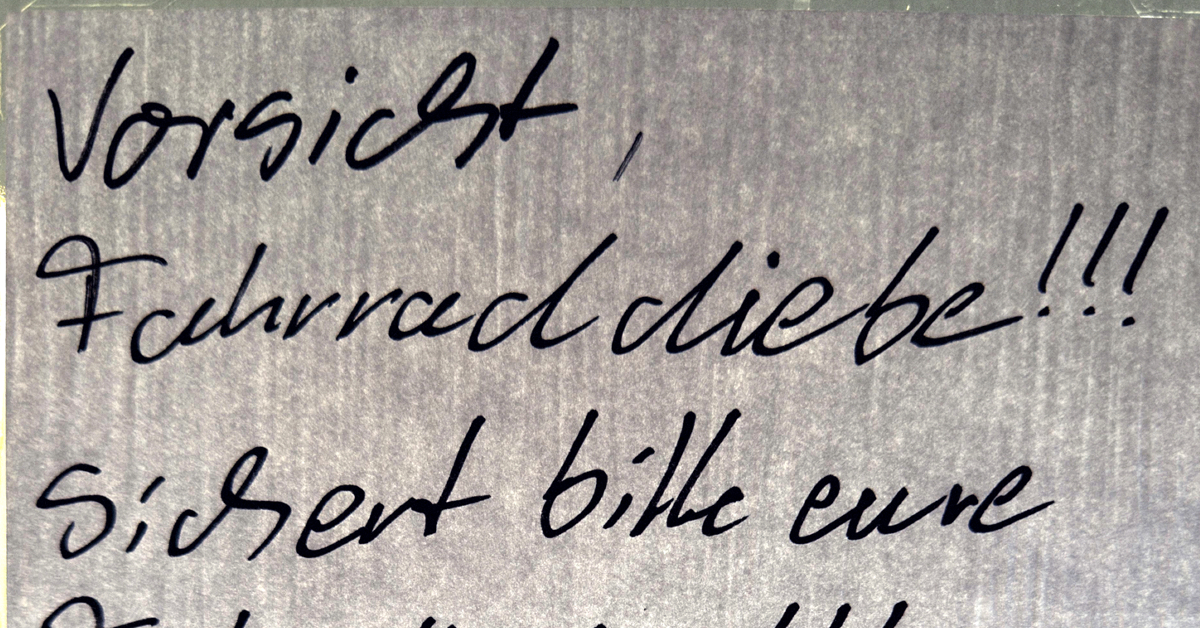 Vorsicht,
Fahrraddiebe!!!
sichert bitte eure